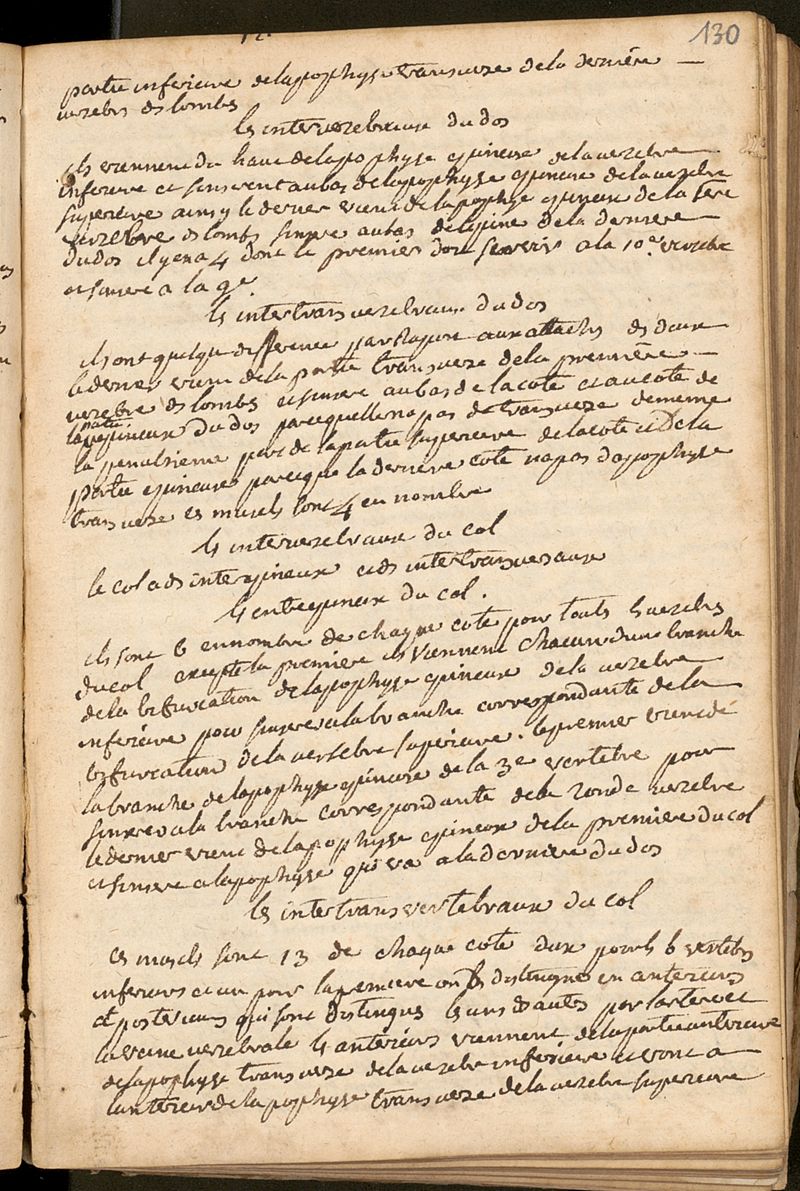 130
partie inferieure de lapophyse transverse de la derniere
vertebre des lombes
les intervertebraux du dos
ils viennent du haut de lapophyse epineuse de la vertebre
inferieure et sinserent au bas de lapophyse epineuse de la vertebre
superieure ainsy le dernier vient de lapophyse epineuse de la 1ere
vertebre des lombes sinsere au bas de lepine de la derniere
du dos il y en a 4 dont le premier doit a la 10e vertebre
et sinsere a la 9e.
les intertransvertebraux du dos
ils ont quelque difference par raport aux attaches des deux
le dernier vient de la partie transverse de la premiere
vertebre des lombes et sinsere au bas de la cote et au cote de
la partie epineuse du dos parcequelle na pas de transverse de meme
la penultieme part de la partie superieure de la cote et de la
partie epineuse parceque la derniere cote na pas dapophyse
transverse ces muscles sont 4 en nombre
les intervertebraux du col
le col a des interepineux et des intertransversaux
les entrepineux du col.
ils sont 6 en nombre de chaque cote pour touts les vertebres
du col excepte la premiere ils viennent chacun dune branche
de la bifurcation de lapophyse epineuse de la vertebre
inferieure pour sinserer a la branche correspondante de la
bifurcation de la vertebre superieure. le premier vient de
la branche de lapophyse epineuse de la 3e vertebre pour
sinserer a la branche correspondante de la 2onde vertebre
le dernier vient de lapophyse epineuse de la premiere du col
et sinsere a lapophyse qui va a la derniere du dos
les intertransvertebraux du col
ces muscls sont 13 de chaque cote deux pour les 6 vertebres
inferieurs et un pour la premiere on les distingue en anterieurs
et posterieurs qui sont distingues les uns des autres par lartere et
la veine vertebrale les anterieurs viennent de la partie anterieure
de lapophyse transverse de la vertebre inferieure et vont a
lanterieure de lapophyse transverse de la vertebre superieure